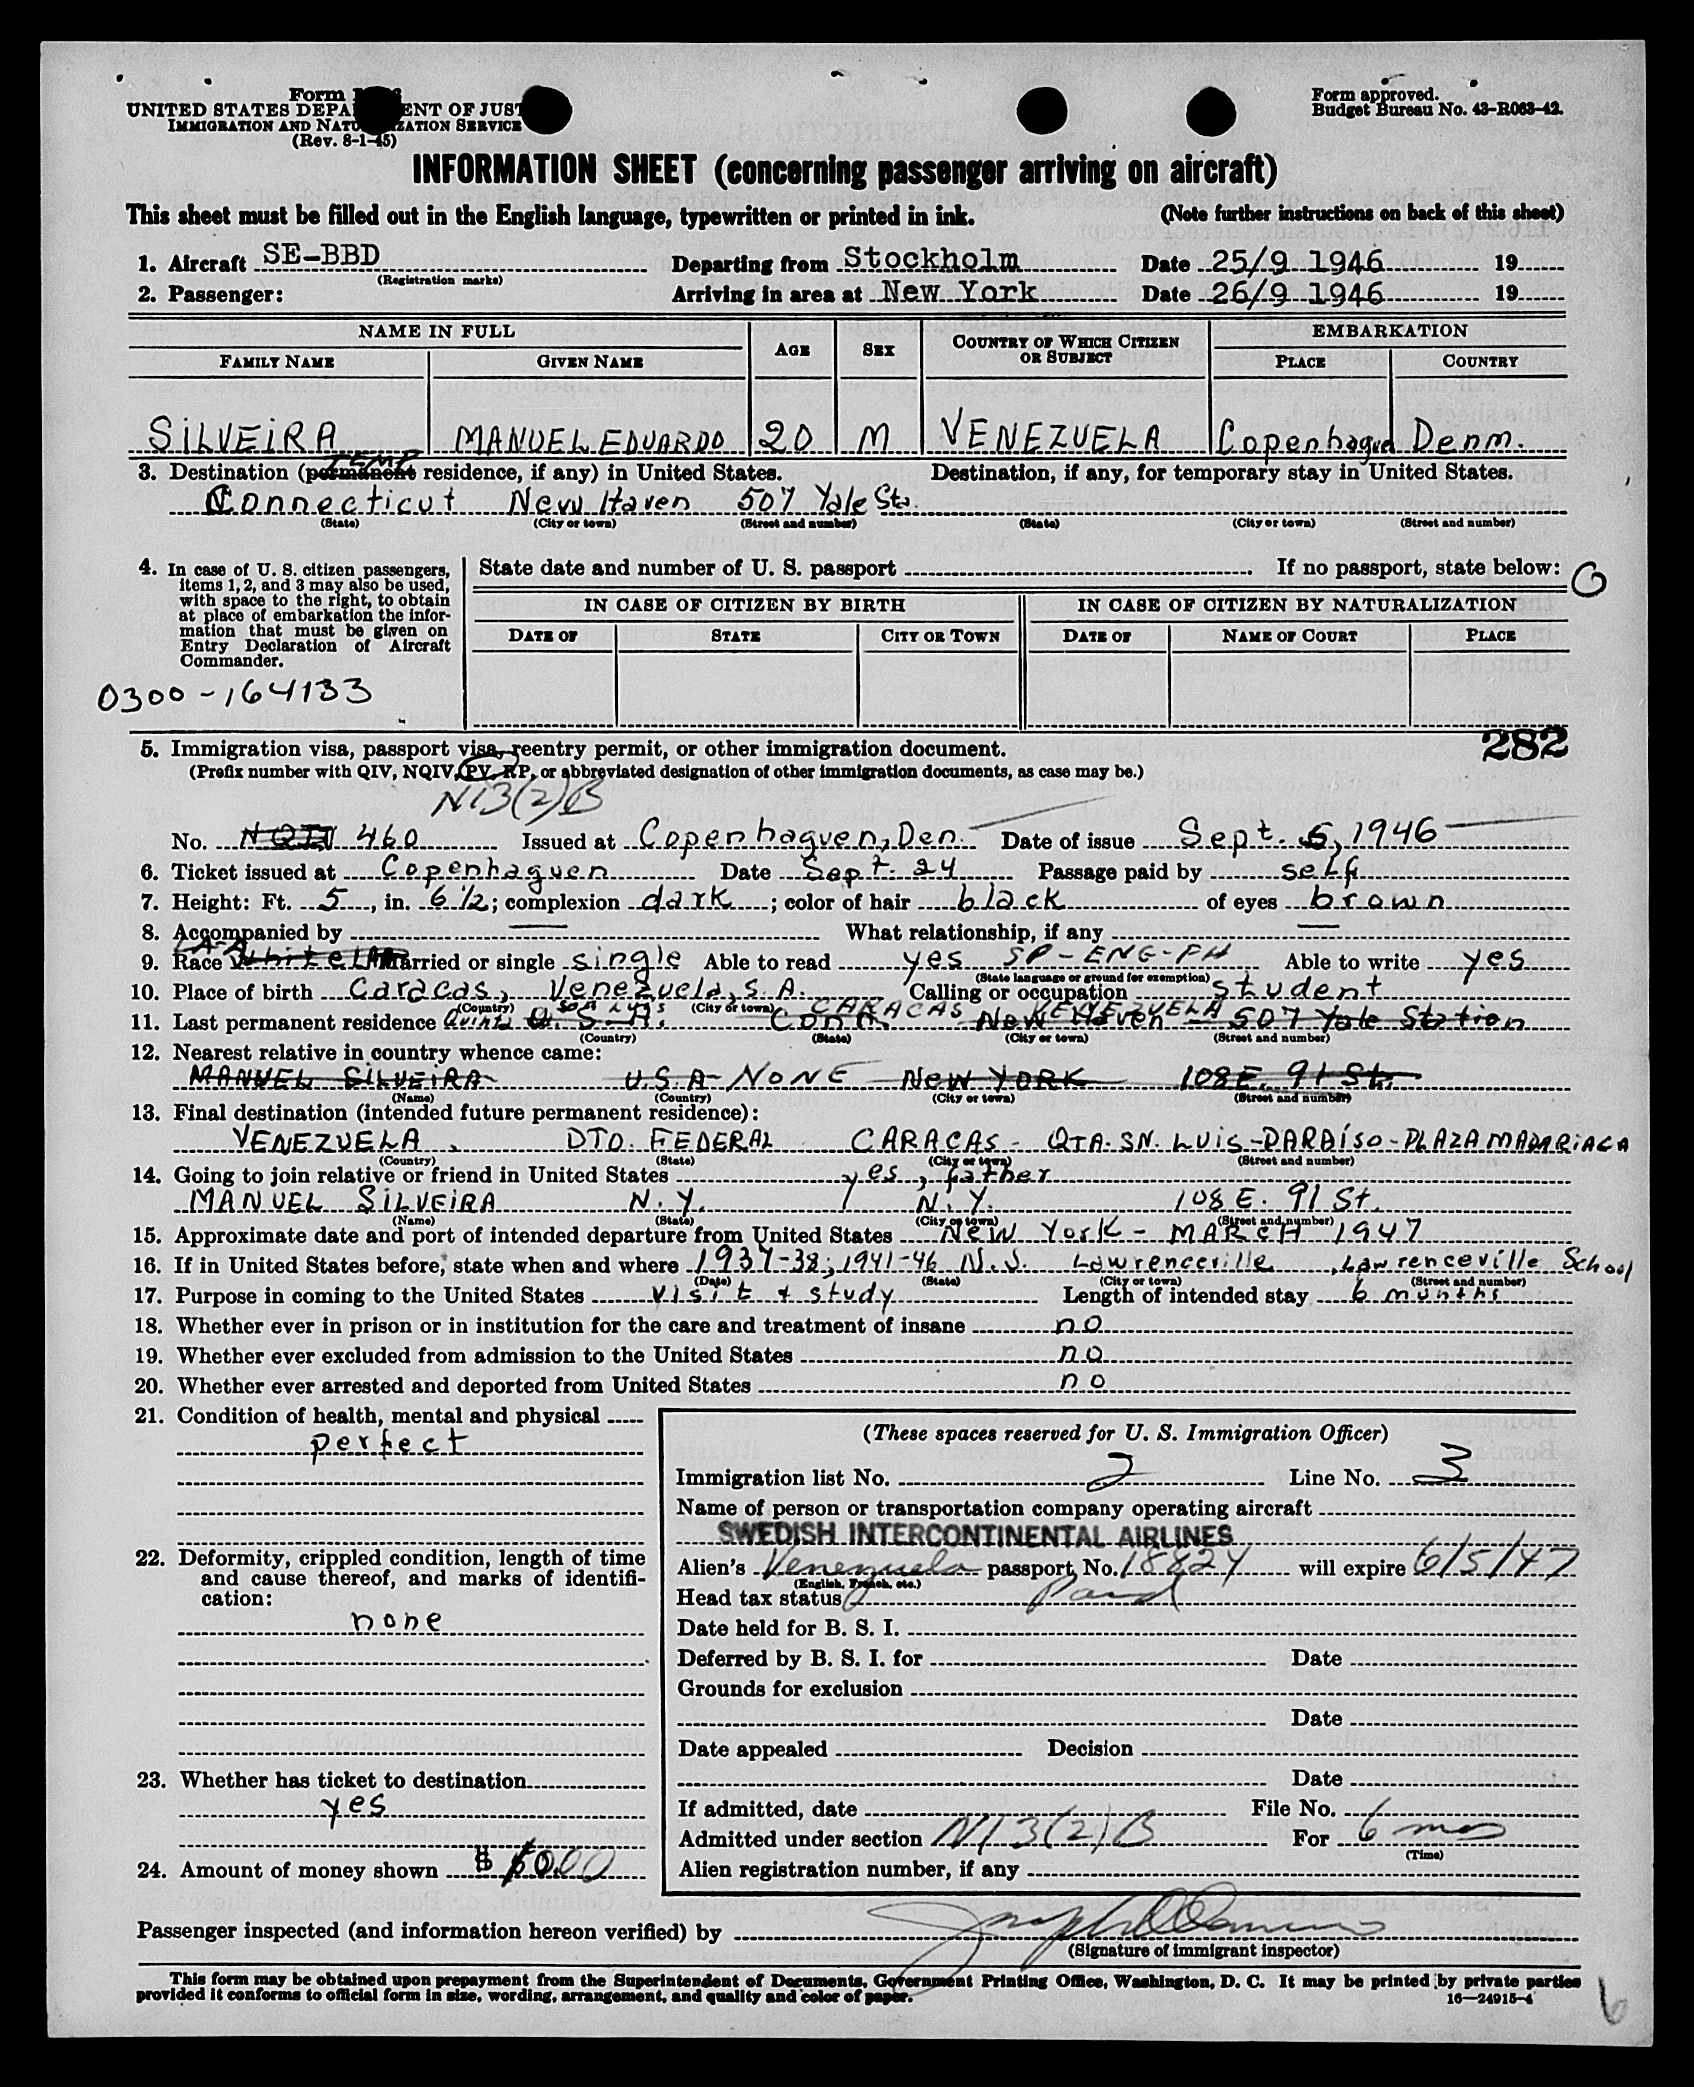 Form
UNITED STATES DEPA ENT OF JUST
IMMIGRATION AND NATU ZATION SERVICE
(Rev. 8-1-45)
Form approved.
Budget Bureau No. 43-R063-42.
INFORMATION SHEET (concerning passenger arriving on aircraft)
This sheet must be filled out in the English language, typewritten or printed in ink. (Note further instructions on back of this sheet)
1. Aircraft SE-BBD Departing from Stockholm Date 25/9 1946 19
(Registration marks)
2. Passenger: Arriving in area at New York Date 26/9 1946 19
NAME IN FULL AGE SEX COUNTRY OF WHICH CITIZEN OR SUBJECT EMBARKATION
FAMILY NAME GIVEN NAME PLACE COUNTRY
SILVEIRA MANUEL EDUARDO 20 M VENEZUELA Copenhaguen Denm.
TEMP
3. Destination (permanent residence, if any) in United States. Destination, if any, for temporary stay in United States.
Connecticut New Haven 507 Yale Sta.
(State) (City or town) (Street and number) (State) (City or town) (Street and number)
4. In case of U. S. citizen passengers,
items 1, 2, and 3 may also be used,
with space to the right, to obtain
at place of embarkation the infor-
mation that must be given on
Entry Declaration of Aircraft
Commander.
State date and number of U. S. passport If no passport, state below:
IN CASE OF CITIZEN BY BIRTH IN CASE OF CITIZEN BY NATURALIZATION
DATE OF STATE CITY OR TOWN DATE OF NAME OF COURT PLACE
0300-164133
282
5. Immigration visa, passport visa, reentry permit, or other immigration document.
(Prefix number with QIV, NQIV, PV, RP, or abbreviated designation of other immigration documents, as case may be.)
NI3(2)B
No. NQIV 460 Issued at Copenhaguen, Den. Date of issue Sept. 5, 1946
6. Ticket issued at Copenhaguen Date Sept. 24 Passage paid by self
7. Height: Ft. 5, in. 6 1/2; complexion dark; color of hair black of eyes brown
8. Accompanied by — What relationship, if any —
LA-A
9. Race White Married or single single Able to read yes SP-ENG-FH Able to write yes
(State language or ground for exemption)
10. Place of birth Caracas, Venezuela, S. A. Calling or occupation student
(Country) (City or town)
San Luis CARACAS VENEZUELA
11. Last permanent residence Quinta U.S.A. Conn. New Haven - 507 Yale Station
(Country) (State) (City or town) (Street and number)
12. Nearest relative in country whence came:
MANUEL SILVEIRA U.S.A NONE NEW YORK 108 E. 91 St.
(Name) (Country) (City or town) (Street and number)
13. Final destination (intended future permanent residence):
VENEZUELA, DTO. FEDERAL CARACAS - QTA. SN. LUIS-PARAÍSO-PLAZA MADARIAGA
(Country) (State) (City or town) (Street and number)
14. Going to join relative or friend in United States yes, father
MANUEL SILVEIRA N.Y. N.Y. 108 E. 91 St.
(Name) (State) (City or town) (Street and number)
15. Approximate date and port of intended departure from United States NEW York - MARCH 1947
16. If in United States before, state when and where 1937-38; 1941-46 N.J. Lawrenceville, Lawrenceville School
(Date) (State) (City or town) (Street and number)
17. Purpose in coming to the United States visit + study Length of intended stay 6 months
18. Whether ever in prison or in institution for the care and treatment of insane no
19. Whether ever excluded from admission to the United States no
20. Whether ever arrested and deported from United States no
21. Condition of health, mental and physical
perfect
22. Deformity, crippled condition, length of time
and cause thereof, and marks of identifi-
cation:
none
23. Whether has ticket to destination
yes
24. Amount of money shown
(These spaces reserved for U. S. Immigration Officer)
Immigration list No. 2 Line No. 3
Name of person or transportation company operating aircraft
SWEDISH INTERCONTINENTAL AIRLINES
Alien's Venezuela passport No. 18824 will expire 6/5/47
(English, French, etc.)
Head tax status Paid
Date held for B. S. I.
Deferred by B. S. I. for Date
Grounds for exclusion
Date
Date appealed Decision
Date
If admitted, date File No.
Admitted under section NI 3(2)B For 6 mos
(Time)
Alien registration number, if any
Passenger inspected (and information hereon verified) by
(Signature of immigrant inspector)
This form may be obtained upon prepayment from the Superintendent of Documents, Government Printing Office, Washington, D. C. It may be printed by private parties
provided it conforms to official form in size, wording, arrangement, and quality and color of paper. 16—24915-4
6